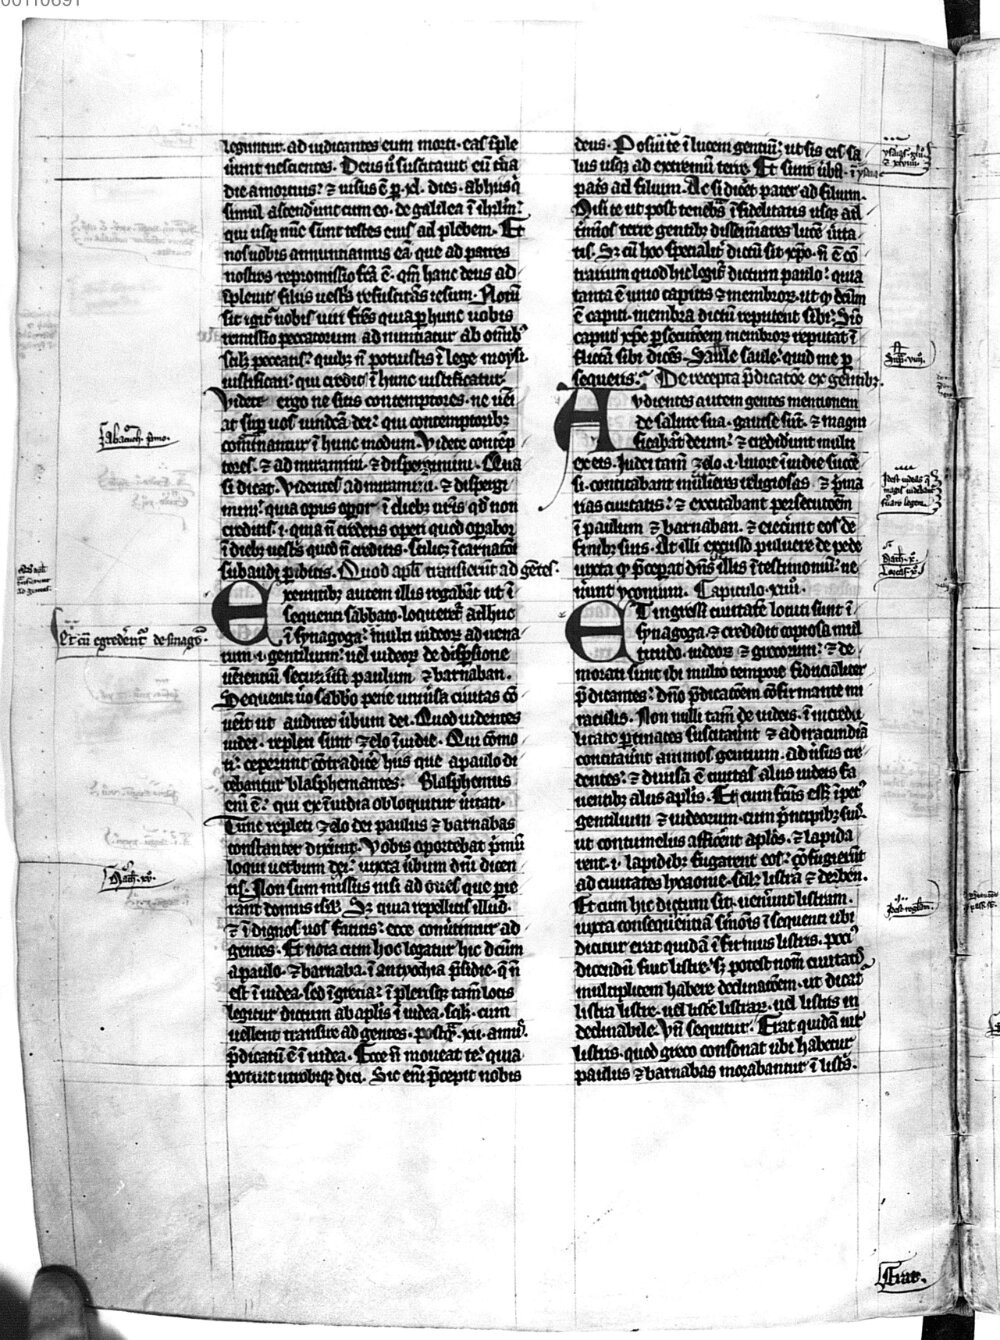 leguntur. ad iudicantes eum morti. eas ĩple
uerunt nescientes. Deus ũ suscitauit eũ t̾cia
die a mortuis? ⁊ uisus ẽ p̱ .xl. dies. ab hus q̾
simul ascend̾unt cum eo. de galilea ĩ ihrl̃m?
qui usq̢ nũc sunt testes eius ad plebem. Et
nos uobis annunciamus eã. que ad patres
nostros repromissio fc̃a ẽ. qm̃ hanc deus ad
ĩpleuit filiis uestris resuscitãs iesum. Notũ
sit igit̾ uobis uiri fr̃es quia p̱ hunc uobis
remissio peccatorum adnuntiatur ab om̃ib̾
scilꝫ peccatis? quibꝫ ñ potuistis ĩ lege moysi
iustificari? qui credit ĩ hunc iustificatur.
Videte ergo ne sitis contemptores. ne ueni
at sup̱ uos uindc̃a dei? qui contemptoribꝫ
cõminantur ĩ hunc modum. Videte contẽp
tores. ⁊ admiramini. ⁊ disperdimini. Qua
si dicat. Videntes admiramini. ⁊ disperdi
mini? quia opus opor̾ ĩ diebꝫ ur̃is qd̾ non
creditis. i. quia ñ credetis operi quod operabor
ĩ diebꝫ uestris quod ñ creditis. scilicet ĩcarnatõi
subaudi p̱ditis. Quod apl̃i transierut ad gẽtes.
Exeuntibꝫ autem illis rogabãt ut ĩ
sequenti sabbato. loquerẽt̾ adhuc
ĩ synagoga? multi iudeoꝝ aduena
rum .i. gentilium? uel iudeoꝝ de disp̱sione
uenientiũ secuti sũt paulum ⁊ barnaban.
Sequenti ũo sabbo pene uniũsa ciuitas cõ
uen̾it ut audiret ũbum dei. Quod uidentes
iudei. repleti sunt ⁊elo ĩuidie. Qui cõmo
ti? ceperunt cõtradic̾e hiis que a paulo di
cebantur blasphemantes? Blasphemus
eni̾ ẽ? qui ex ĩuidia obloquitur ũitati.
Tunc repleti ⁊elo dei paulus ⁊ barnabas
constanter dixerunt. Vobis oportebat p̾mũ
loqui uerbum dei? iuxta ũbum dñi dicen
tis. Non sum missus nisi ad oues que pie
rant domus isrl̃. Sꝫ quia repellitis illud.
⁊ ĩdignos uos facitis? ecce conuertimur ad
gentes. Et nota cum hoc legatur hic dc̃um
a paulo. ⁊ barnaba. ĩ antyochia p̾sidie. q̃ ñ
est ĩ iudea. sed ĩ grecia? ĩ plerisq̢ tam̃ locis
legitur dictum ab apl̃is ĩ iudea. scilꝫ. cum
uellent transire ad gentes. postq̃ .xii. anni̾.
p̾dicatũ ẽ ĩ iudea. Ecce ñ moueat te? quia
potuit utrobiq̢ dici. Sic eni̾ p̾cepit nobis
deus. Posui te ĩ lucem gentiũ? ut sis eis sa
lus usq̢ ad extremũ terre. Et sunt ũba. ĩ ysaia
patris ad filium. Ac si dic̾et pater ad filium.
Misi te ut post tenebras ĩfidelitatis usq̢ ad
t̾minos terre gentibꝫ disseminares lucẽ ũita
tis. Sꝫ cũ hoc specialit̾ dictũ sit xp̃o. ñ ẽ cõ
trarium quod hic legit̾ dictum paulo? quia
tanta ẽ unio capitis ⁊ membroꝝ. ut q̢ dictũ
ẽ capiti. membra dictũ reputent sibi? Sic
caput xp̃c p̱secutõem membroꝝ reputat ĩ
flictã sibi dicẽs. Saule saule? quid me p̱
sequeris? De recepta p̾dicatõe ex gentibꝫ.
Audientes autem gentes mentionem
de salute sua. gauise sũt. ⁊ magni
ficabãt deum? ⁊ crediderunt multi
ex eis. Iudei tam̃ ⁊elo .i. liuore ĩuidie succẽ
si. concitabant mulieres religiosas ⁊ p̾ma
rias ciuitatis? ⁊ excitabant persecutõem
ĩ paulum ⁊ barnaban. ⁊ eiecẽunt eos de
finibꝫ suis. At illi excusso puluere de pede
iuxta q̢ p̾cep̱at dñs illis ĩ testimonium? ue
nẽunt yconium. Capitulo .xiiii.
ET ingressi ciuitatẽ locuti sunt ĩ
synagoga. ⁊ credidit copiosa mul
titudo. iudeoꝝ ⁊ grecorum? ⁊ de
morati sunt ibi multo tempore fiducialiter
p̾dicantes? dño p̾dicatõem cõfirmante mi
raculis. Non nulli tam̃ de iudeis. ĩ incredu
litate p̱tinaces suscitauẽunt ⁊ ad iracundiã
concitauẽunt animos gentium. aduersus cre
dentes? ⁊ diuisa ẽ ciuitas aliis iudeis fa
uentibꝫ aliis apl̃is. Et cum fc̃us ess̃ ĩpet̾
gentilium ⁊ iudeorum. cum p̾ncipibꝫ suis̾
ut contumeliis afficẽent apl̃os. ⁊ lapida
rent .i. lapidibꝫ fugarent eos? cõfugierũt
ad ciuitates lycaonie. scilꝫ listra ⁊ derben.
Et cum hic dictum sit. uenẽunt listram.
iuxta consequentiam sm̃onis ĩ sequenti ubi
dicitur erat quidã ĩfirmus listris. poci̾
dicendũ fuit listre. sꝫ potest nom̃ ciuitatis
multiplicem habere declinatõem. ut dicat̾
listra listre. uel liste listraꝝ. uel listris in
declinabile. Vñ sequitur. Erat quidã uir
listris. quod greco consonat ubi habetur
paulus ⁊ barnabas morabantur ĩ listris.
Abacuch. p̾mo.
Et cũ egredẽent̾ de sinagoᵃ.
Math. xv.
Erat.